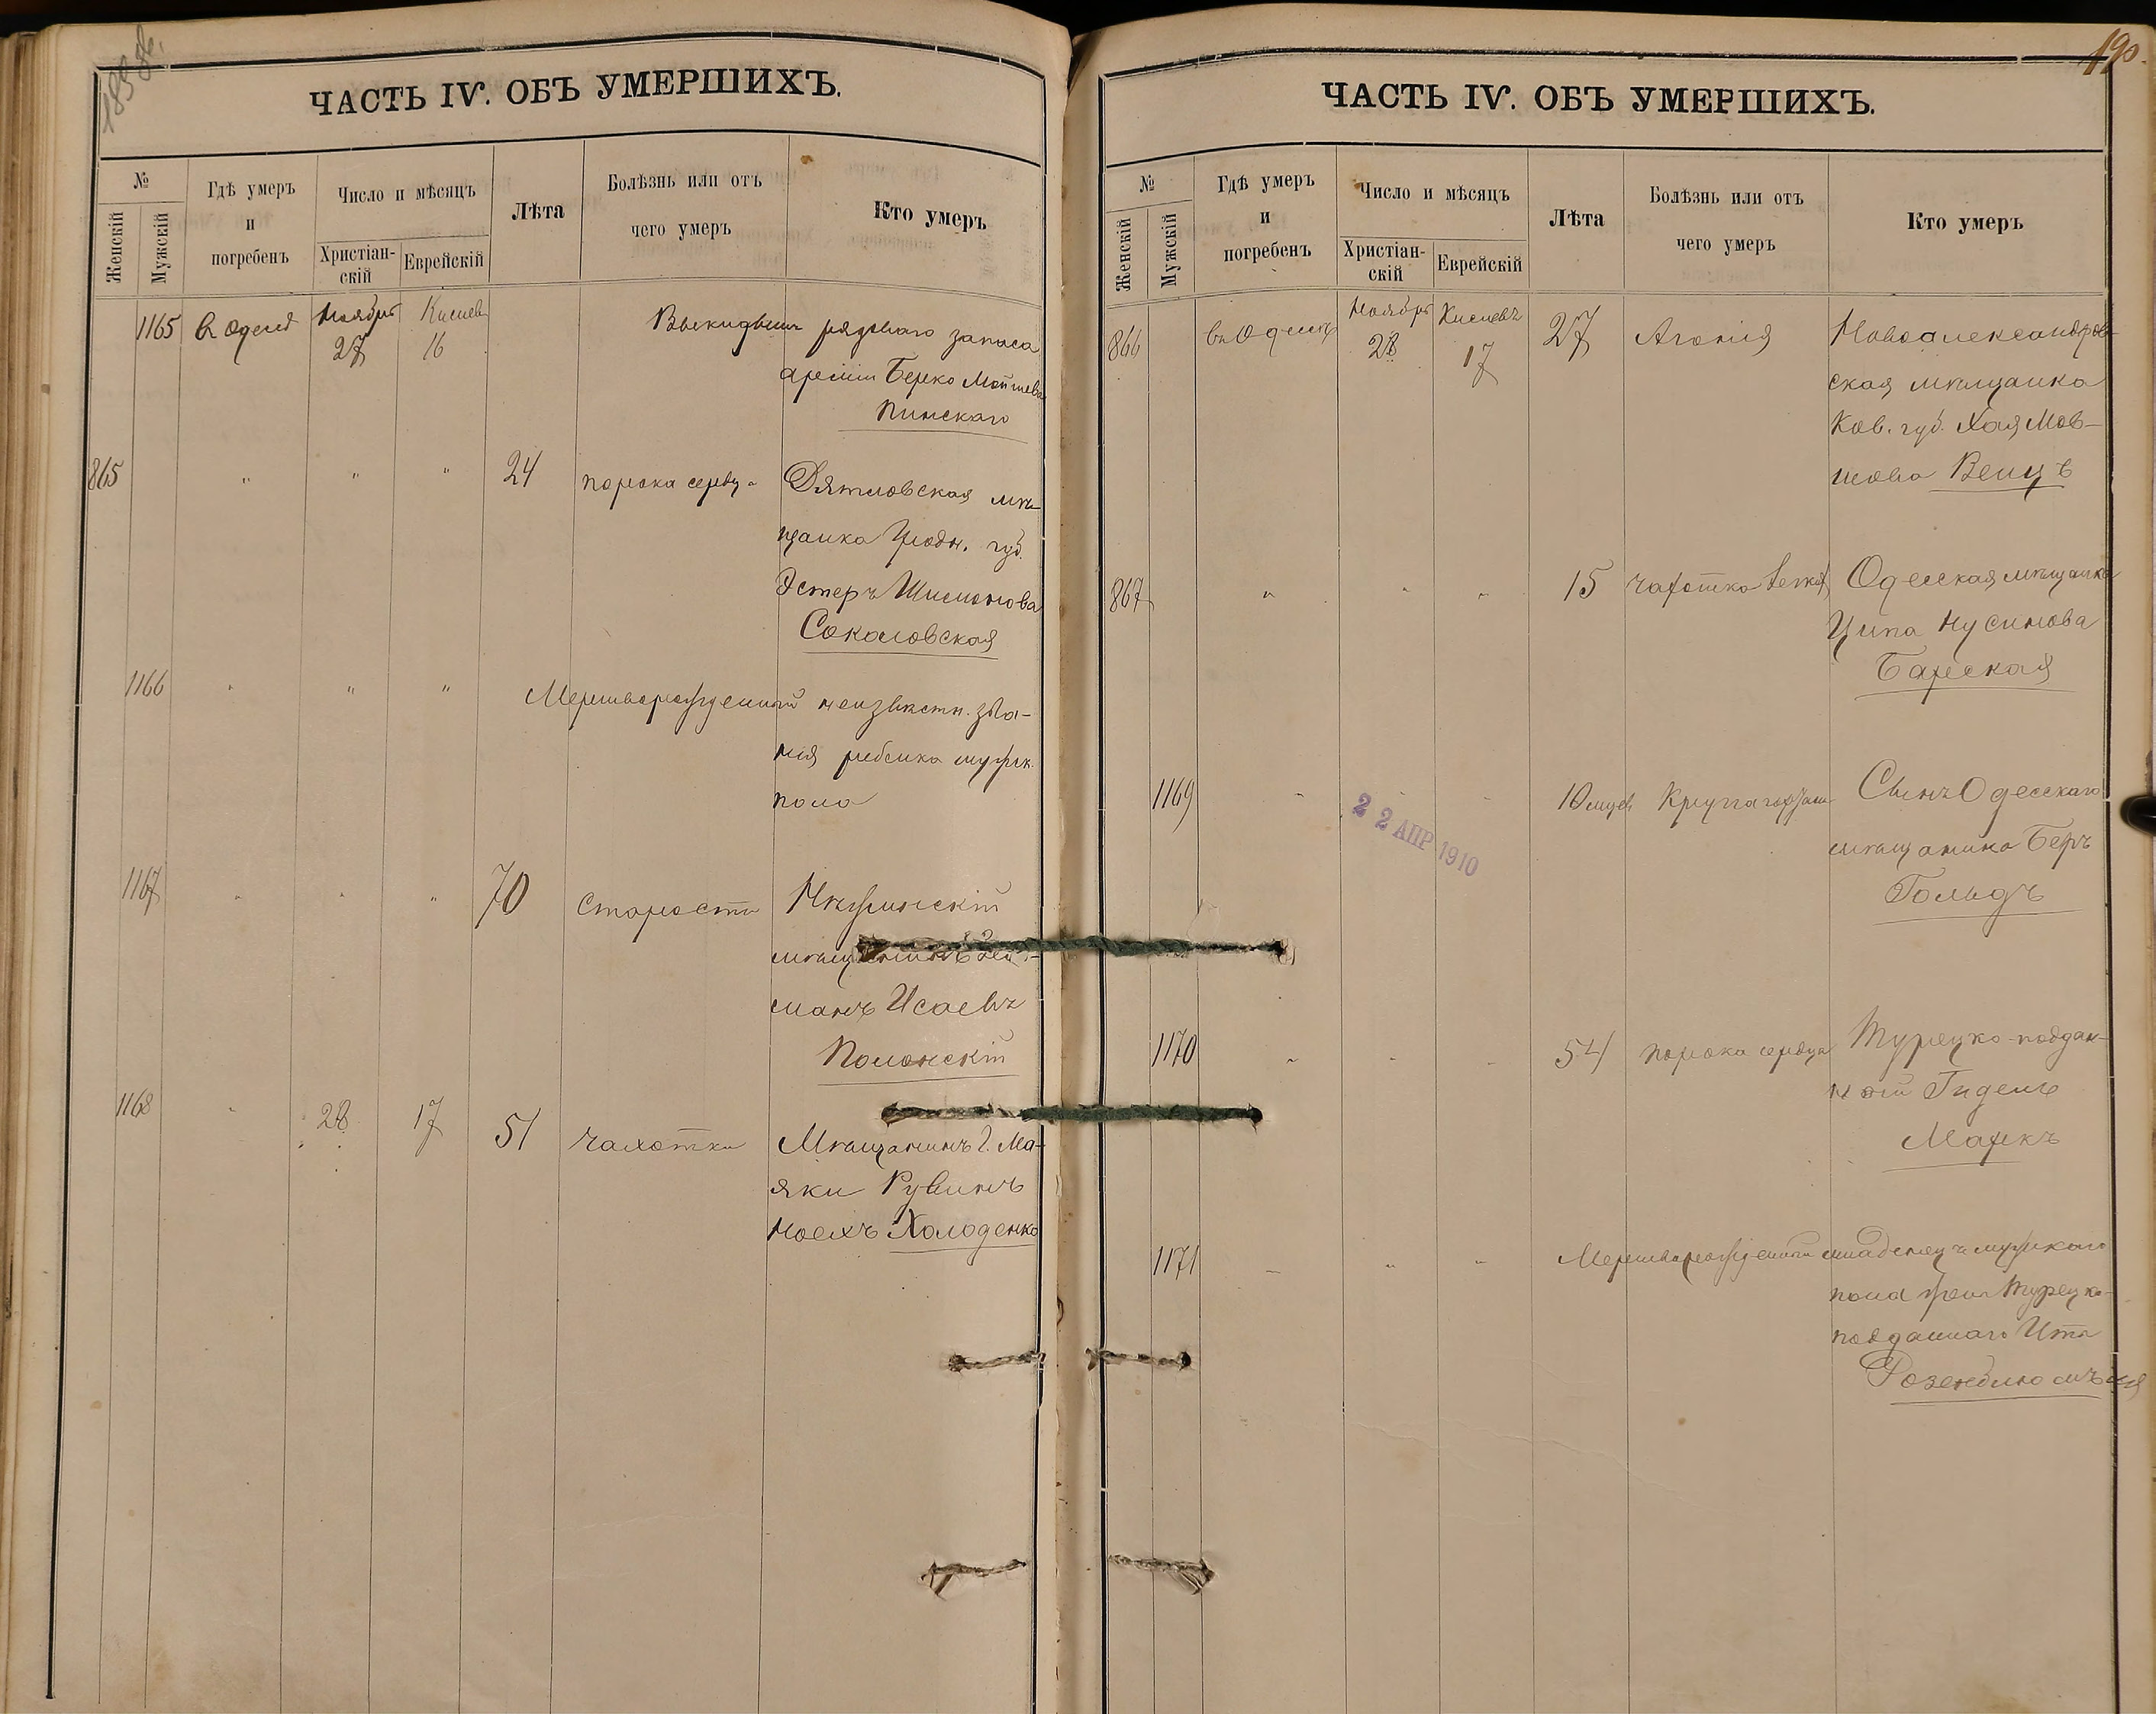 ЧАСТЬ IV. ОБЪ УМЕРШИХЪ.
№
Женскій
Мужскій
Гдѣ умеръ
и
погребенъ
Число и мѣсяцъ
Христіан-
скій
Еврейскій
Лѣта
Болѣзнь или отъ
чего умеръ
Кто умеръ
1165 въ Одессѣ Ноябрь Кислевъ Выкидышъ рядового запаса
27 16
арміи Берко Мойшева
Пинскаго
865 " " " 24 порока сердца Дятловская мѣ-
щанка Гродн. губ.
Эстеръ Шимонова
Соколовская
1166 " " " Мертворожденный неизвѣстн. зва-
нія ребенка мужск.
пола
1167 " " " 70 старости
мѣщанинъ
манъ Исаевъ
Полонскій
1168 " 28 17 51 чахотки Мѣщанинъ г. Ма-
яки Рувинъ
Ноехъ Холоденко
190.
ЧАСТЬ IV. ОБЪ УМЕРШИХЪ.
№
Женскій
Мужскій
Гдѣ умеръ
и
погребенъ
Число и мѣсяцъ
Христіан-
скій
Еврейскій
Лѣта
Болѣзнь или отъ
чего умеръ
Кто умеръ
866 въ Одессѣ Ноябрь Кислевъ 27 Агонія Новоалександров-
28 17
ская мѣщанка
Ков. губ. Хая Мов-
шова Венцъ
867 " " " 15 чахотка легкихъ Одесская мѣщанка
Ципа Нусинова
Барская
1169 " " " 10 мѣсяц. Сынъ Одесскаго
22 АПР 1910
мѣщанина Беръ
Гольдъ
1170 " " " 54 порока сердца Турецко-поддан-
ный
Маркъ
1171 " " " Мертворожденный младенецъ мужскаго
пола Турецко-
подданнаго
Розенблюмъ